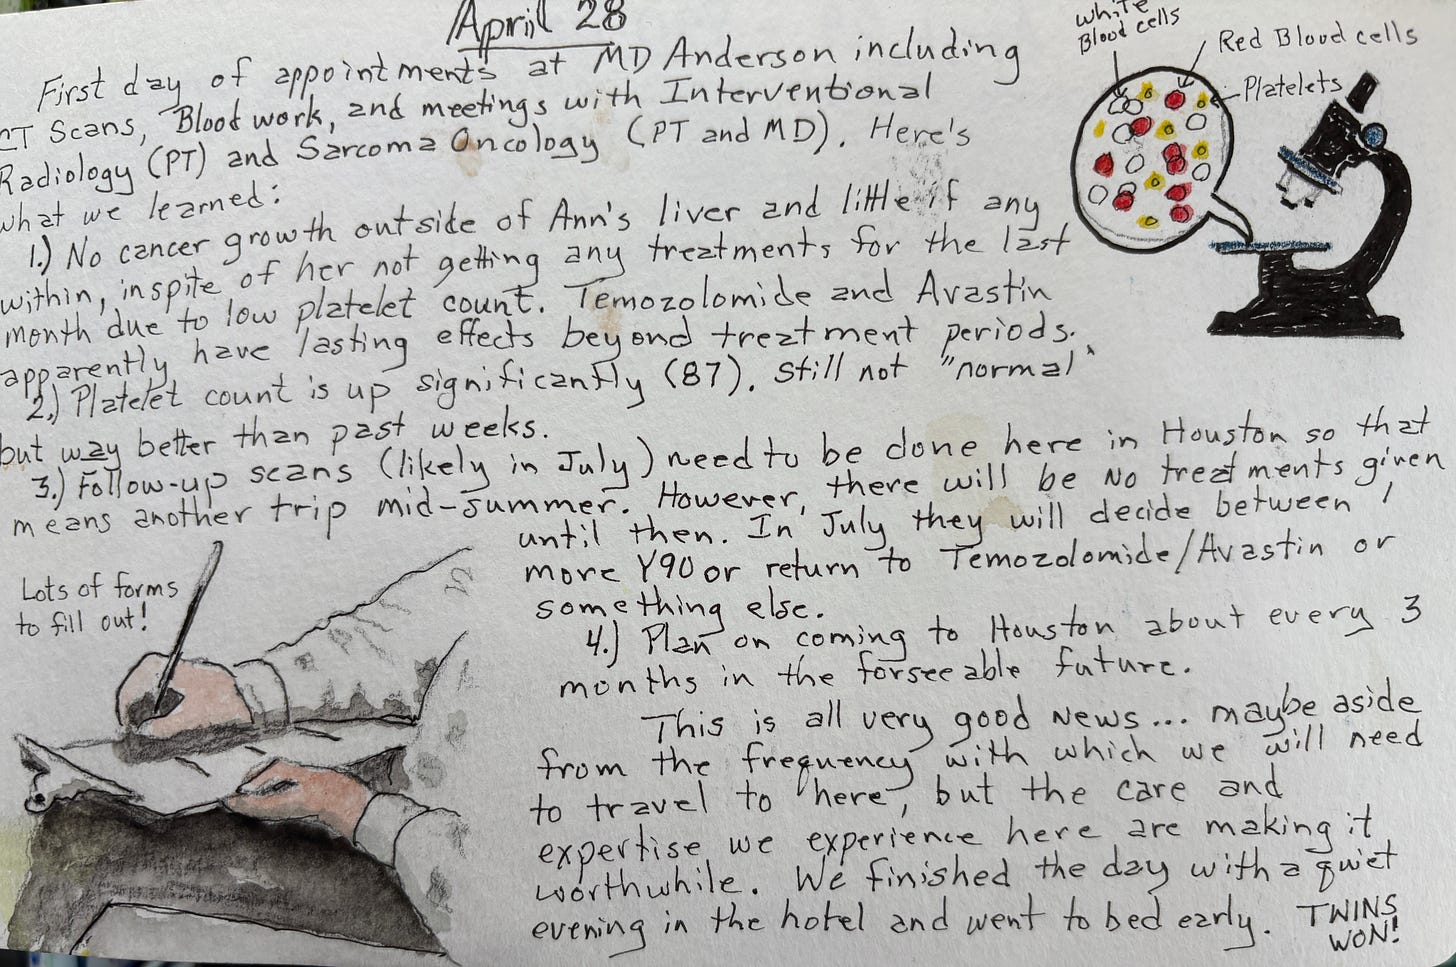 April 28
First day of appointments at MD Anderson including
CT Scans, Blood work, and meetings with Interventional
Radiology (PT) and Sarcoma Oncology (PT and MD). Here's
what we learned:
1.) No cancer growth outside of Ann's liver and little if any
within, inspite of her not getting any treatments for the last
month due to low platelet count. Temozolomide and Avastin
apparently have lasting effects beyond treatment periods.
2.) Platelet count is up significantly (87). Still not "normal"
but way better than past weeks.
3.) Follow-up scans (likely in July) need to be done here in Houston so that
means another trip mid-summer. However, there will be no treatments given
until then. In July they will decide between
more Y90 or return to Temozolomide/Avastin or
something else.
4.) Plan on coming to Houston about every 3
months in the forseeable future.
This is all very good news... maybe aside
from the frequency with which we will need
to travel to "here", but the care and
expertise we experience here are making it
worthwhile. We finished the day with a quiet
evening in the hotel and went to bed early. TWINS
WON!
White
Blood cells
Red Blood cells
Platelets
Lots of forms
to fill out!